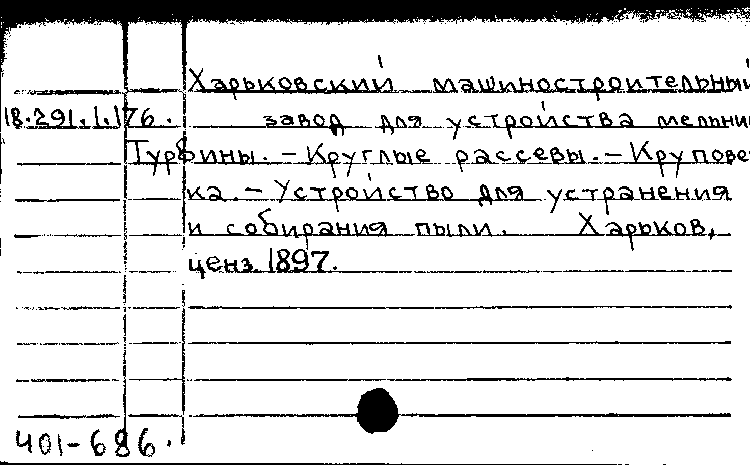 Харьковский машиностроительный
18.291.1.176. завод для устройства мельниц
Турбины. – Круглые рассевы. – Круповей-
ка. – Устройство для устранения
и собирания пыли. Харьков,
ценз. 1897.
401-686.